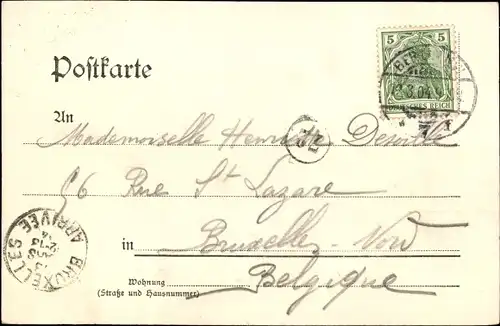 5 5
DEUTSCHES REICH
Postkarte
An
Mademoiselle Henriette
56 Rue St Lazare
in Bruxelles-Nord
Wohnung
(Straße und Hausnummer)
Belgique
BRUXELLES
ARRIVEE